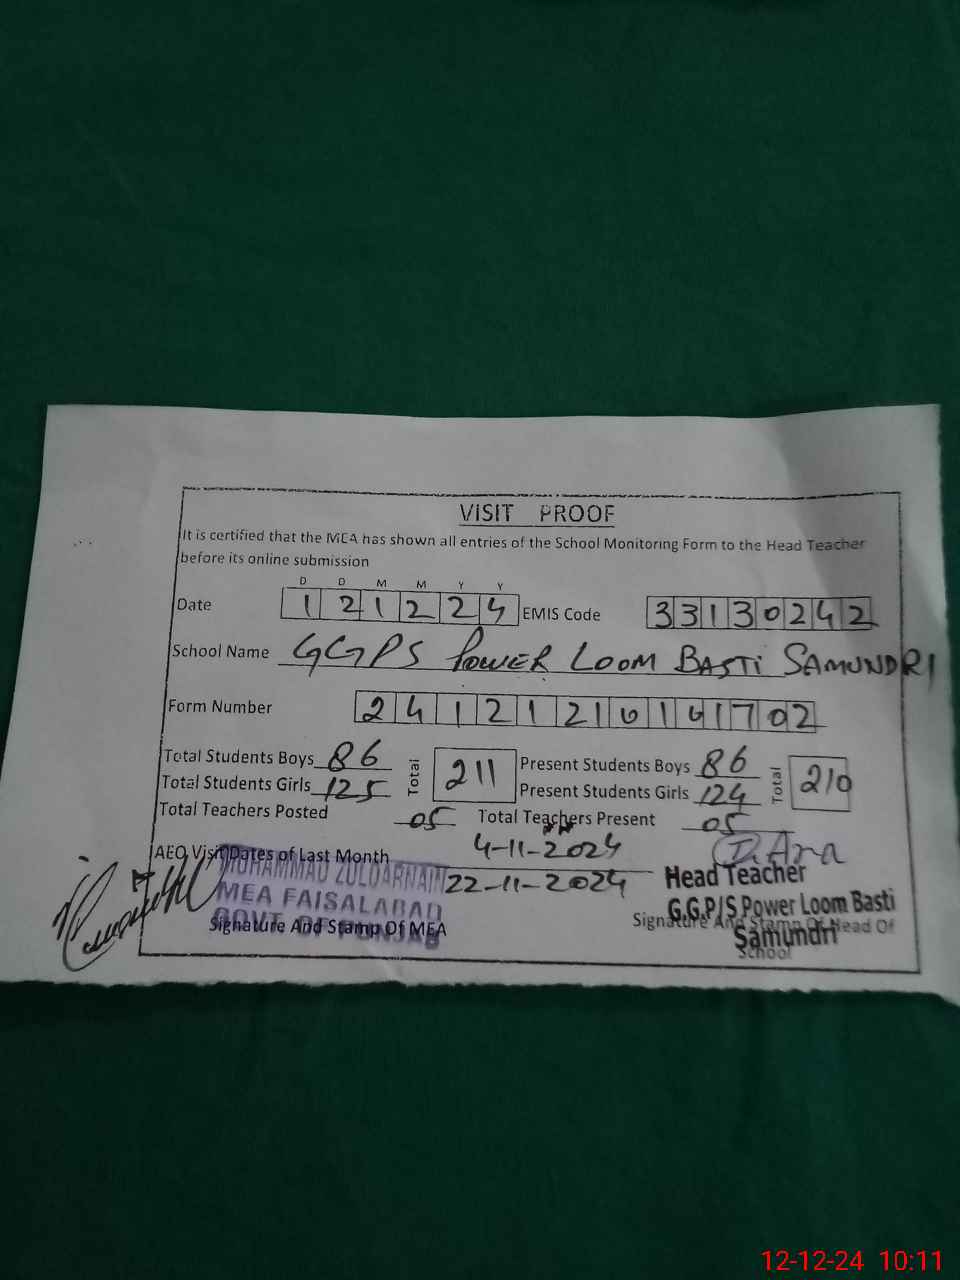 VISIT PROOF
It is certified that the MEA has shown all entries of the School Monitoring Form to the Head Teacher
before its online submission
D D M M Y Y
Date 1 2 1 2 2 4 EMIS Code 3 3 1 3 0 2 4 2
School Name GGPS POWER LOOM BASTI SAMUNDRI
Form Number
Total Students Boys 86 Total 211 Present Students Boys 86 Total 210
Total Students Girls 125 Present Students Girls 124
Total Teachers Posted 05 Total Teachers Present 05
AEO Visit Dates of Last Month 4-11-2024
22-11-2024
MUHAMMAD ZULQARNAIN
MEA FAISALABAD
GOVT. OF PUNJAB
Signature And Stamp Of MEA
Head Teacher
G.G.P/S Power Loom Basti
Samundri
Signature And Stamp Of Head Of
School
12-12-24 10:11